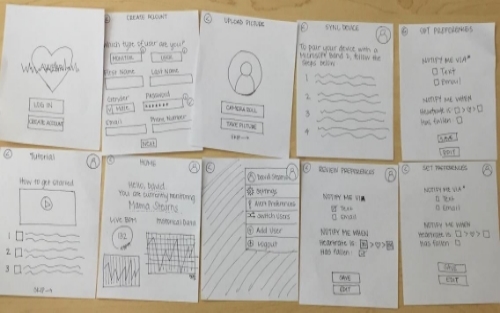 LOG IN
CREATE ACCOUNT
CREATE ACCOUNT
Which type of user are you?
MONITOR
USER
First Name
Last Name
Gender
Password
Male
Email
Phone Number
NEXT
UPLOAD PICTURE
CAMERA ROLL
TAKE PICTURE
SKIP→
SYNC DEVICE
To pair your device with a
Microsoft Band 2, follow the
steps below
1
2
3
4
SET PREFERENCES
NOTIFY ME VIA
Text
Email
NOTIFY ME WHEN
heartrate is:
has fallen:
SAVE
EDIT
TUTORIAL
How to get started
1
2
3
SKIP→
HOME
Hello, David
You are currently monitoring
Mama Storts
Live BPM
Historical Data
132
David Storts
Settings
Alert Preferences
Switch Users
Add User
Logout
REVIEW PREFERENCES
NOTIFY ME VIA
Text
Email
NOTIFY ME WHEN
heartrate is:
has fallen:
SAVE
EDIT
SET PREFERENCES
NOTIFY ME VIA
Text
Email
NOTIFY ME WHEN
heartrate is:
has fallen:
SAVE
EDIT